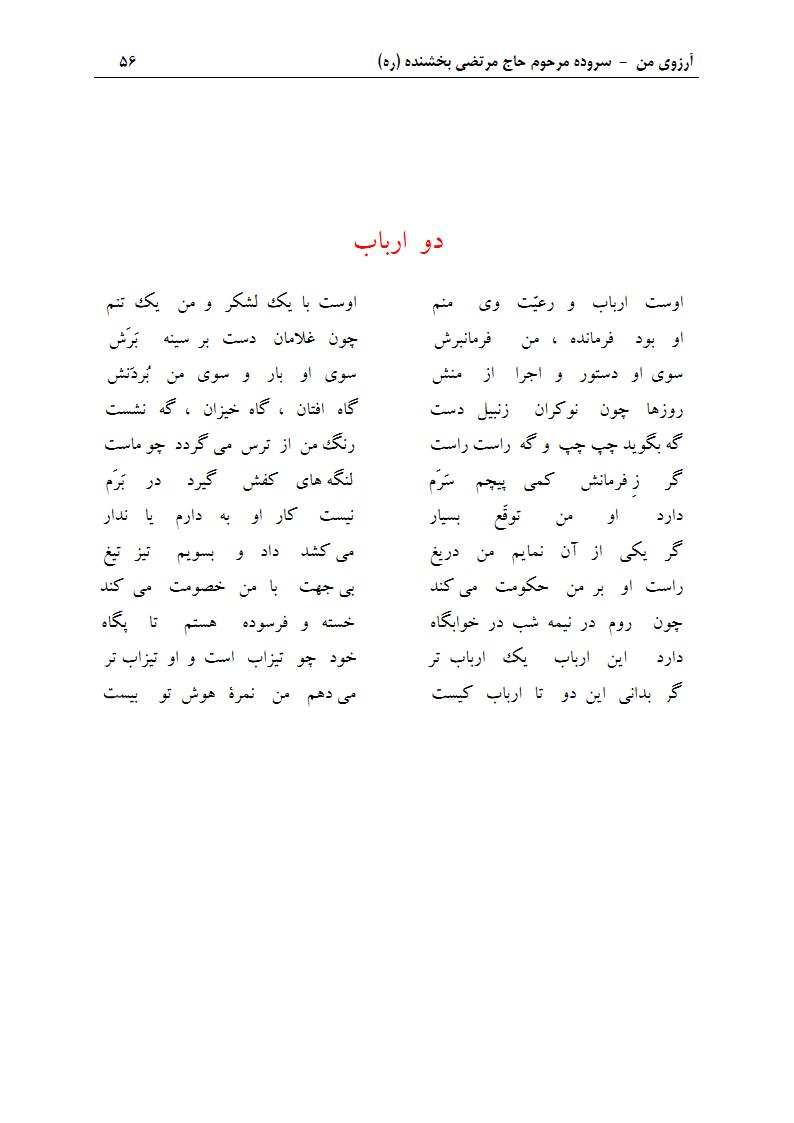 آرزوی من - سروده مرحوم حاج مرتضی بخشنده (ره) ۵۶
دو ارباب
اوست ارباب و رعیّت وی منم اوست با یک لشکر و من یک تنم
او بود فرمانده ، من فرمانبرش چون غلامان دست بر سینه بَرَش
سوی او دستور و اجرا از منش سوی او بار و سوی من بُردَنش
روزها چون نوکران زنبیل دست گاه افتان ، گاه خیزان ، گه نشست
گه بگوید چپ چپ و گه راست راست رنگ من از ترس می گردد چو ماست
گر زِ فرمانش کمی پیچم سَرَم لنگه های کفش گیرد در بَرَم
دارد او من توقّع بسیار نیست کار او به دارم یا ندار
گر یکی از آن نمایم من دریغ می کشد داد و بسویم تیز تیغ
راست او بر من حکومت می کند بی جهت با من خصومت می کند
چون روم در نیمه شب در خوابگاه خسته و فرسوده هستم تا پگاه
دارد این ارباب یک ارباب تر خود چو تیزاب است و او تیزاب تر
گر بدانی این دو تا ارباب کیست می دهم من نمرهٔ هوش تو بیست